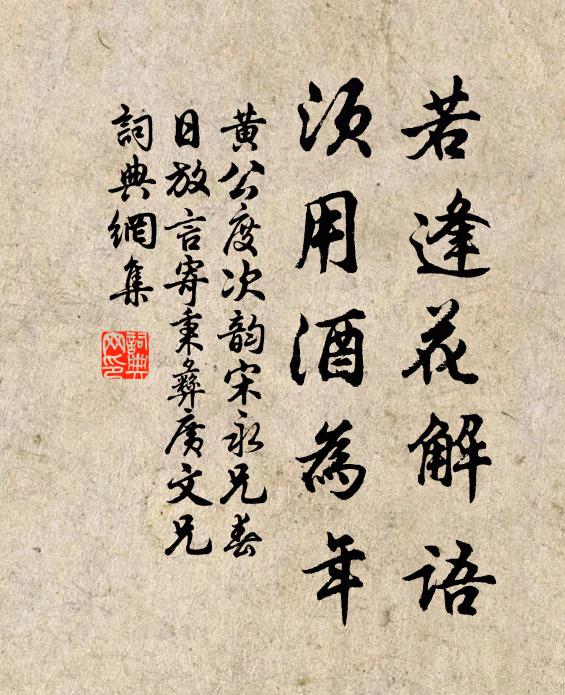 若逢花解語
須用酒為年
黃公度次韵宋永兄春
日放言寄秉彝廣文兄
詞典網集
詞典
网印